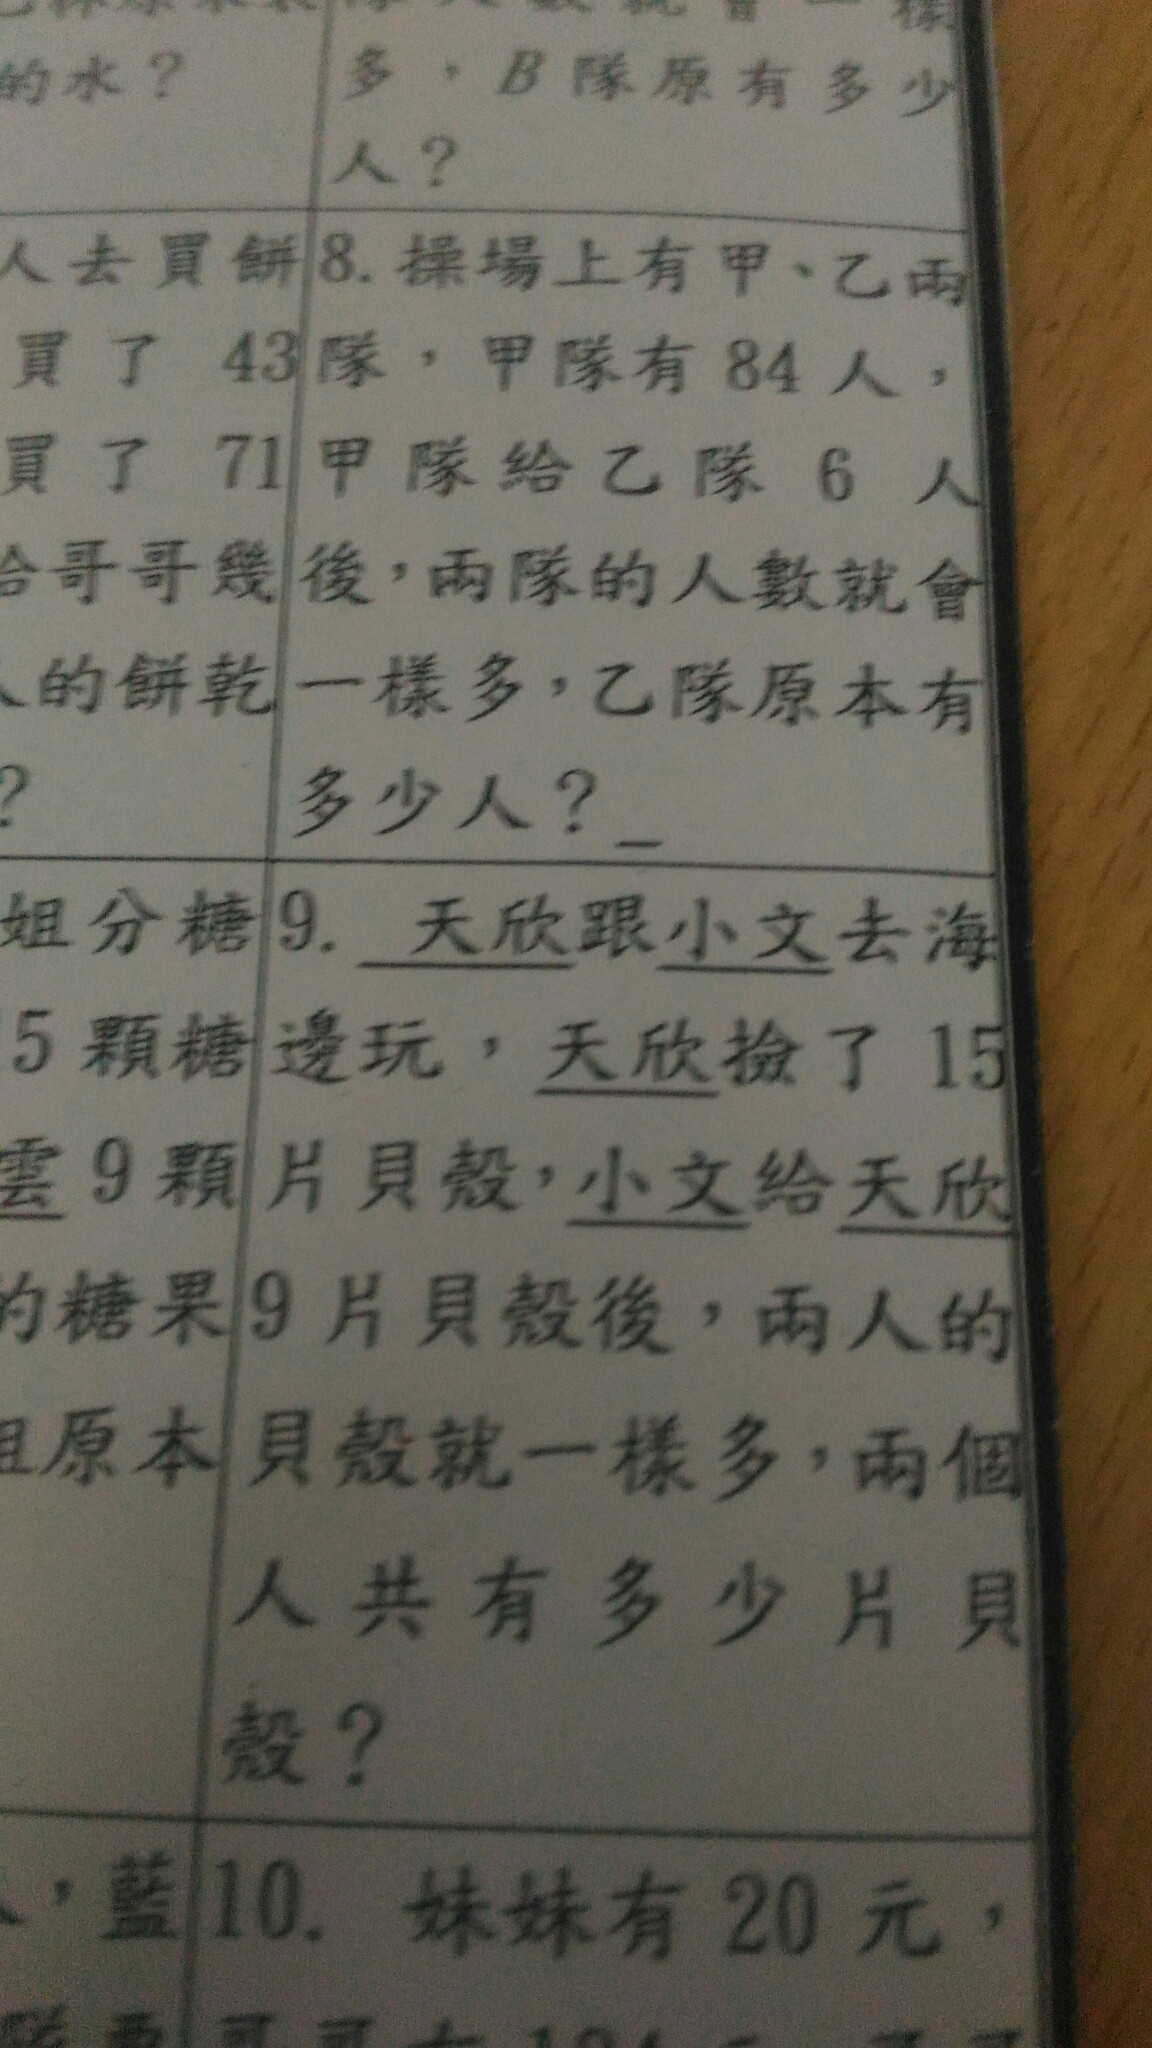 的水？
多，B隊原有多少
人？
人去買餅
買了 43
買了 71
給哥哥幾
人的餅乾
？
8. 操場上有甲、乙兩
隊，甲隊有 84 人，
甲隊給乙隊 6 人
後，兩隊的人數就會
一樣多，乙隊原本有
多少人？_
姐分糖
15 顆糖
雲 9 顆
的糖果
姐原本
9. 天欣跟小文去海
邊玩，天欣撿了 15
片貝殼，小文給天欣
9 片貝殼後，兩人的
貝殼就一樣多，兩個
人共有多少片貝
殼？
，藍
10. 妹妹有 20 元，